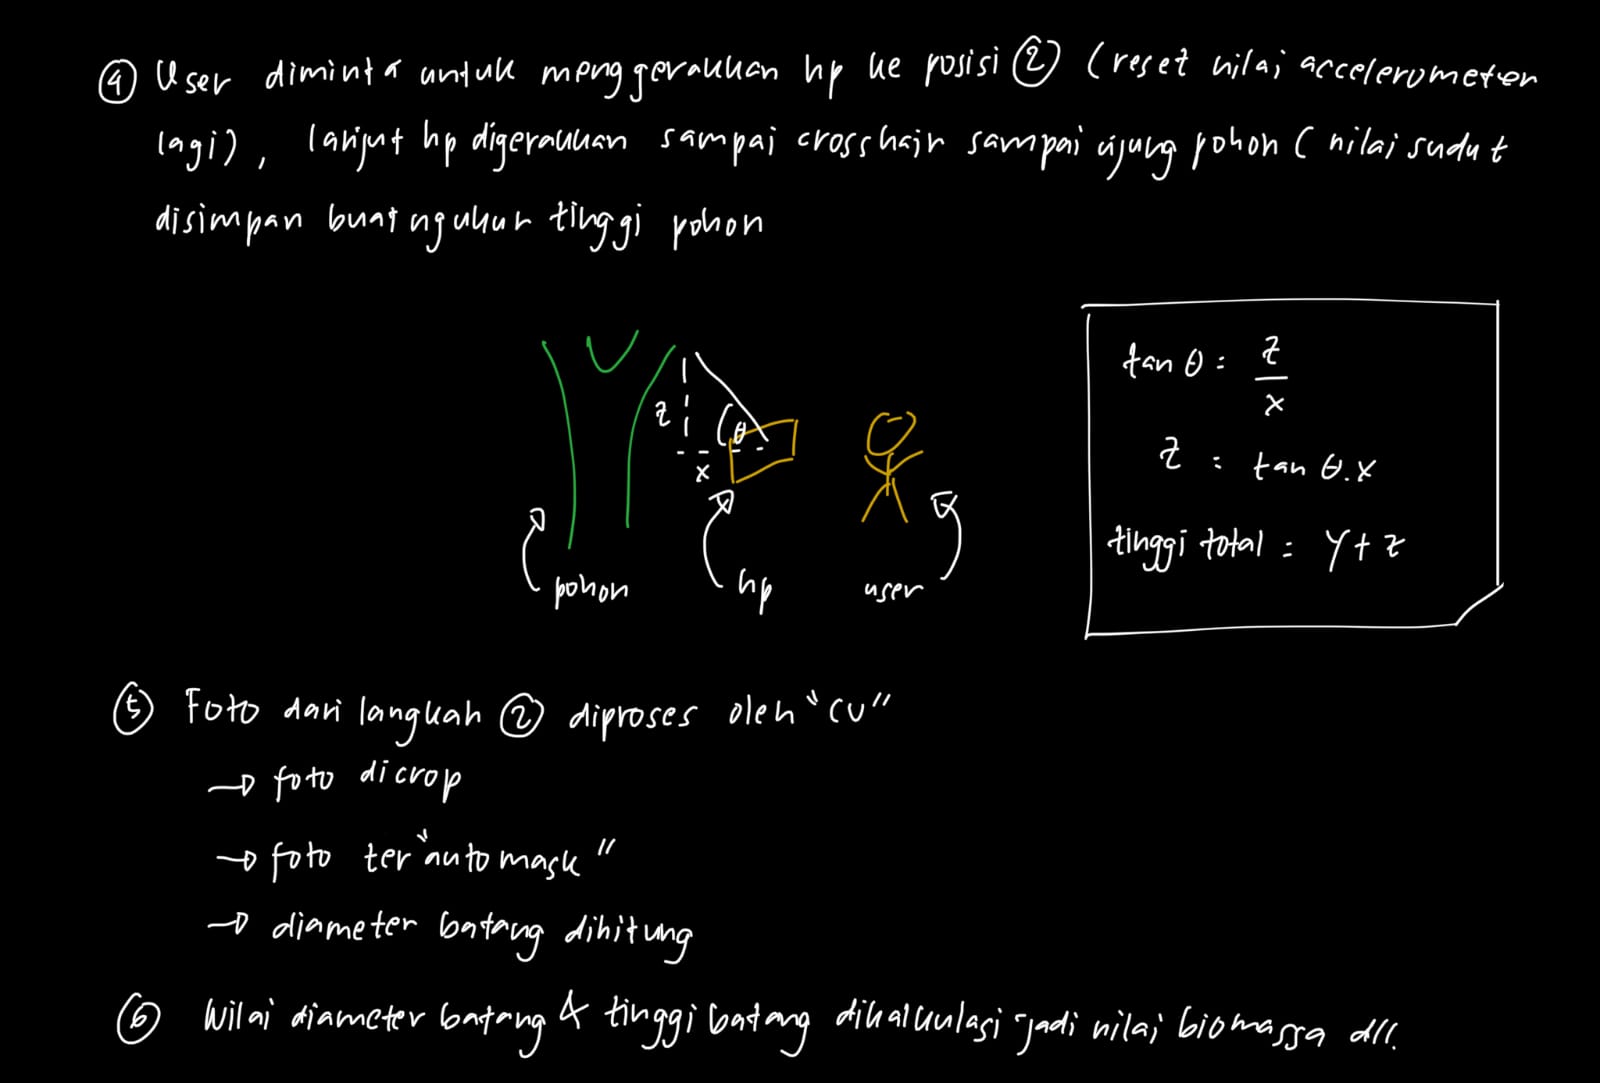 ④ User diminta untuk menggerakkan hp ke posisi ② (reset nilai accelerometer
lagi), lanjut hp digerakkan sampai crosshair sampai ujung pohon ( nilai sudut
disimpan buat ngukur tinggi pohon
z
θ
x
pohon
hp
user
tan θ = z/x
z = tan θ . x
tinggi total = y + z
⑤ Foto dari langkah ② diproses oleh "CV"
→ foto dicrop
→ foto ter "automask"
→ diameter batang dihitung
⑥ Nilai diameter batang & tinggi batang dikalkulasi jadi nilai biomassa dll.